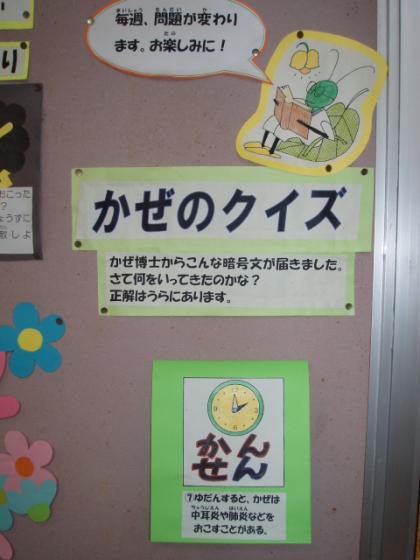 毎週、問題が変わり
ます。お楽しみに！
り
かぜのクイズ
かぜ博士からこんな暗号文が届きました。
さて何をいってきたのかな？
正解はうらにあります。
おこった
？
ょうずに
散しよ
かん
せん
⑦ゆだんすると、かぜは
中耳炎や肺炎などを
おこすことがある。